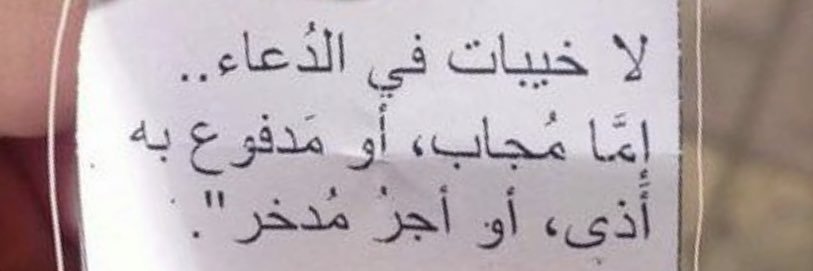 لا خيبات في الدُعاء..
إمَّا مُجاب، أو مَدفوع به
أَذى، أو أجرُ مُدخر".